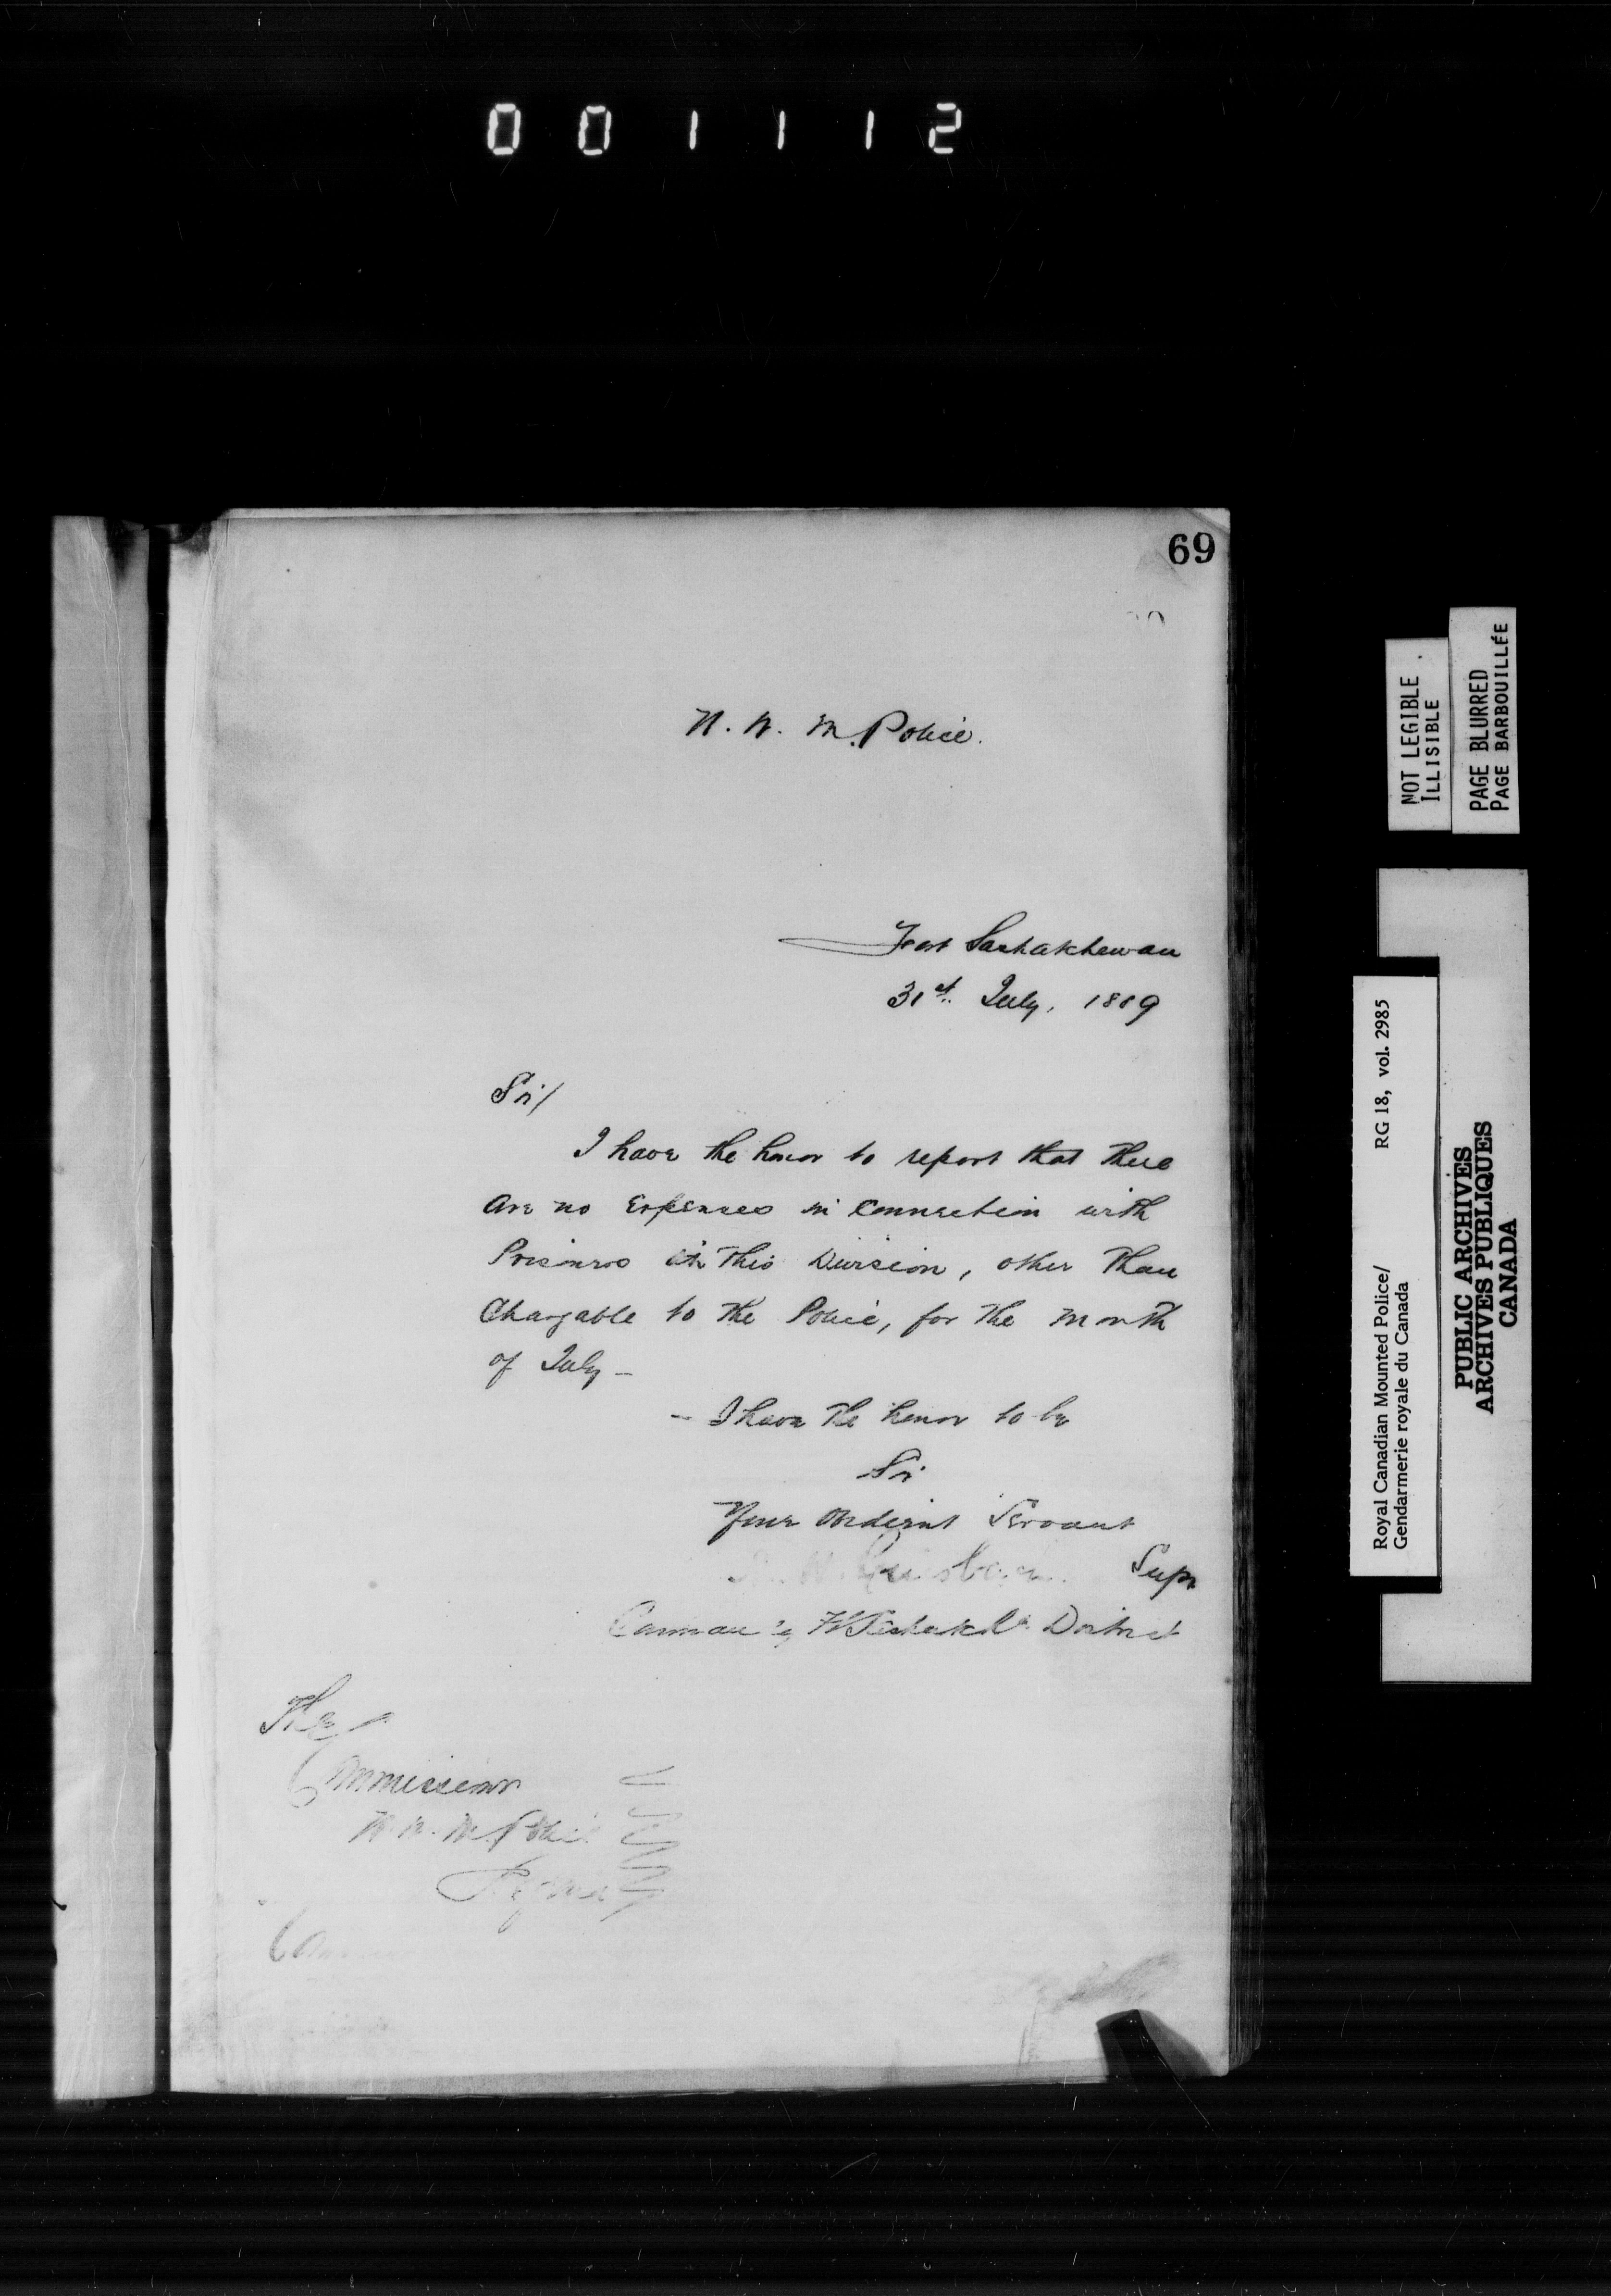 001112
69
N. W. M. Police.
Fort Saskatchewan
31st. July, 1889
Sir/
I have the honor to report that there
are no Expenses in Connection with
Prisoners in this Division, other than
Chargable to the Police, for the Month
of July -
- I have the honor to be
Sir
Your Obedient Servant
Griesbach. Supt
District
The
Commissioner
N. W. M. Police
Regina
NOT LEGIBLE
ILLISIBLE
PAGE BLURRED
PAGE BARBOUILLÉE
Royal Canadian Mounted Police/ RG 18, vol. 2985
Gendarmerie royale du Canada
PUBLIC ARCHIVES
ARCHIVES PUBLIQUES
CANADA